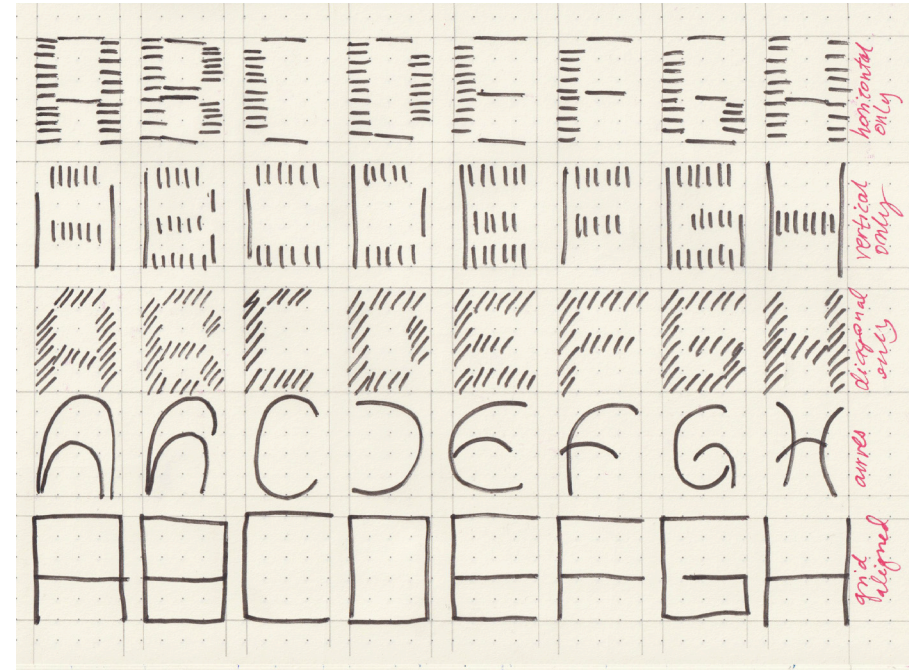 A B C D E F G H horizontal
only
A B C D E F G H vertical
only
A B C D E F G H diagonal
only
A B C D E F G H curves
A B C D E F G H grid
aligned